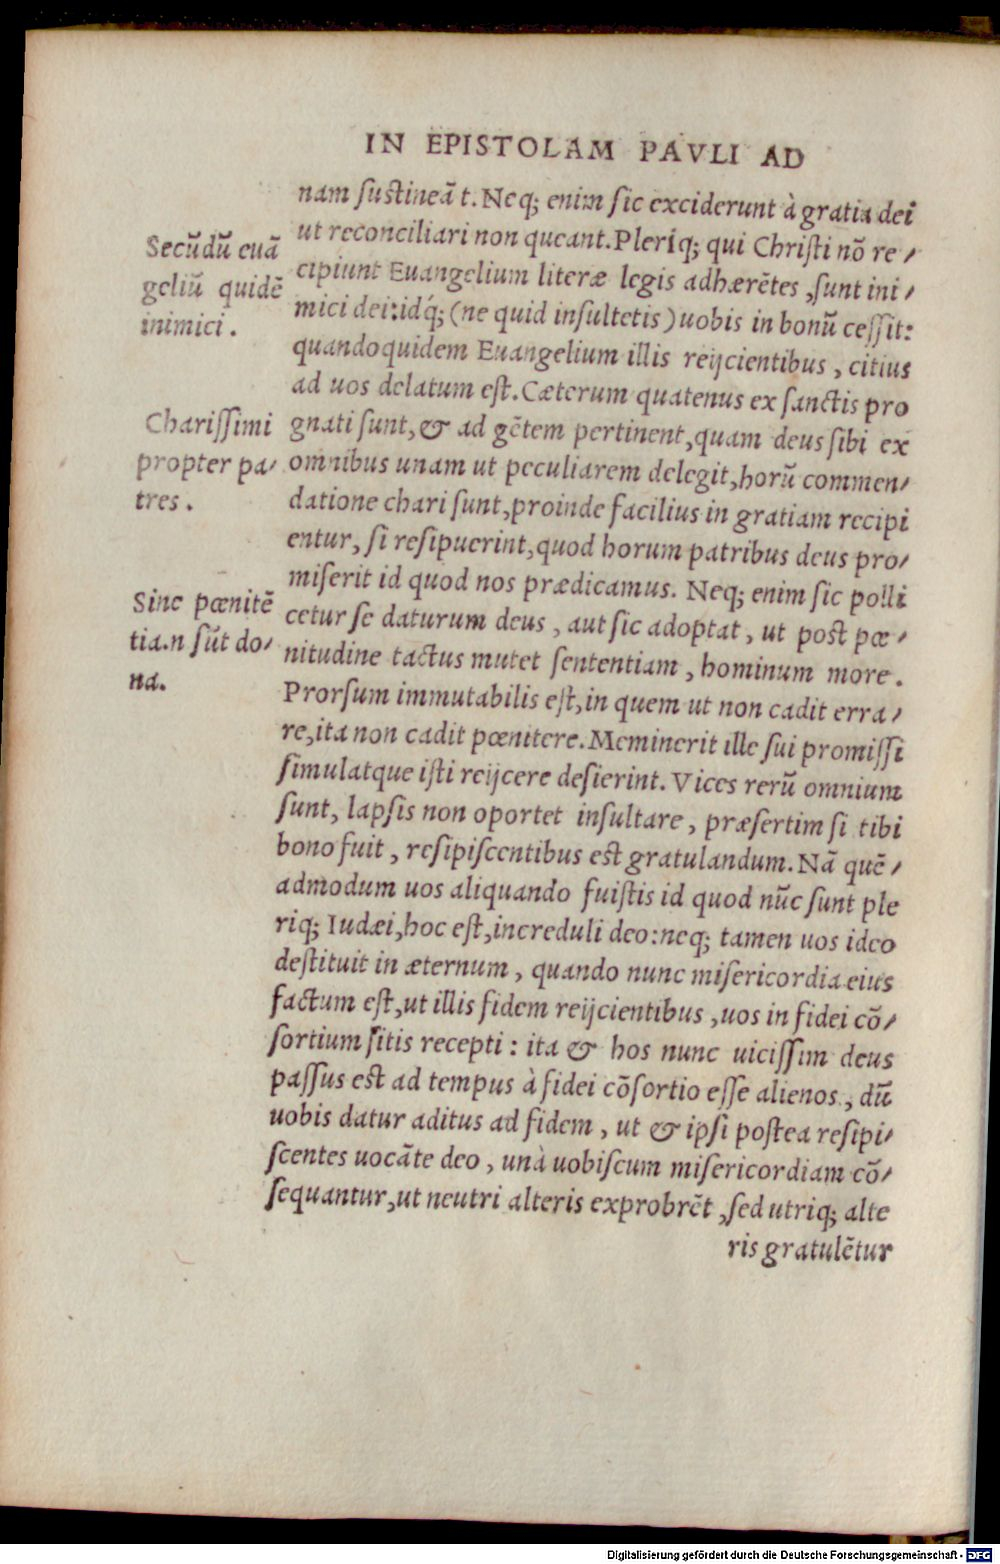 IN EPISTOLAM PAVLI AD
nam ſuſtineãt. Neq; enim ſic exciderunt à gratia dei
ut reconciliari non queant. Pleriq; qui Chriſti nõ re/
cipiunt Euangelium literæ legis adhærẽtes, ſunt ini/
mici dei: idq́; (ne quid inſultetis) uobis in bonũ ceſſit:
quandoquidem Euangelium illis reijcientibus, citius
ad uos delatum eſt. Cæterum quatenus ex ſanctis pro
gnati ſunt, & ad gẽtem pertinent, quam deus ſibi ex
omnibus unam ut peculiarem delegit, horũ commen/
datione chari ſunt, proinde facilius in gratiam recipi
entur, ſi reſipuerint, quod horum patribus deus pro/
miſerit id quod nos prædicamus. Neq; enim ſic polli
cetur ſe daturum deus, aut ſic adoptat, ut poſt pœ/
nitudine tactus mutet ſententiam, hominum more.
Prorſum immutabilis eſt, in quem ut non cadit erra/
re, ita non cadit pœnitere. Meminerit ille ſui promiſſi
ſimulatque iſti reijcere deſierint. Vices rerũ omnium
ſunt, lapſis non oportet inſultare, præſertim ſi tibi
bono fuit, reſipiſcentibus eſt gratulandum. Nã quẽ/
admodum uos aliquando fuiſtis id quod nũc ſunt ple
riq; Iudæi, hoc eſt, increduli deo: neq; tamen uos ideo
deſtituit in æternum, quando nunc miſericordia eius
factum eſt, ut illis fidem reijcientibus, uos in fidei cõ/
ſortium ſitis recepti: ita & hos nunc uiciſſim deus
paſſus eſt ad tempus à fidei cõſortio eſſe alienos, dũ
uobis datur aditus ad fidem, ut & ipſi poſtea reſipi/
ſcentes uocãte deo, unà uobiſcum miſericordiam cõ/
ſequantur, ut neutri alteris exprobrẽt, ſed utriq; alte
ris gratulẽtur
Secũdũ euã
geliũ quidẽ
inimici.
Chariſſimi
propter pa/
tres.
Sine pœnitẽ
tia.n ſũt do/
na.
Digitalisierung gefördert durch die Deutsche Forschungsgemeinschaft - DFG